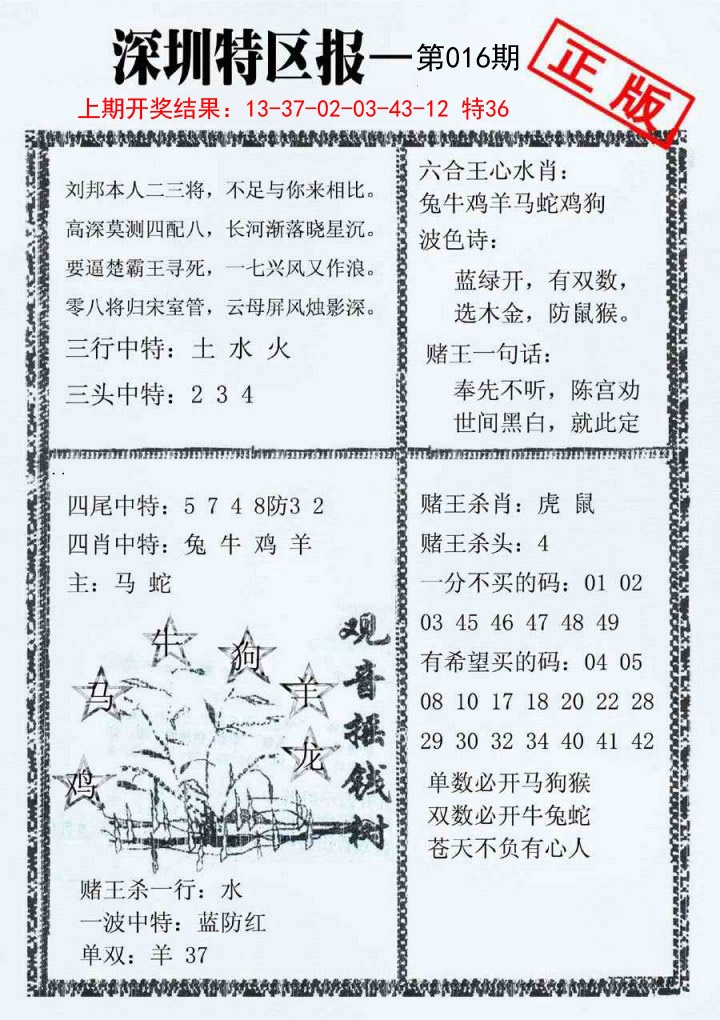 深圳特区报—第016期
正版
上期开奖结果：13-37-02-03-43-12 特36
刘邦本人二三将，不足与你来相比。
高深莫测四配八，长河渐落晓星沉。
要逼楚霸王寻死，一七兴风又作浪。
零八将归宋室管，云母屏风烛影深。
三行中特：土 水 火
三头中特：2 3 4
六合王心水肖：
兔牛鸡羊马蛇鸡狗
波色诗：
蓝绿开，有双数，
选木金，防鼠猴。
赌王一句话：
奉先不听，陈宫劝
世间黑白，就此定
四尾中特：5 7 4 8防3 2
四肖中特：兔 牛 鸡 羊
主：马 蛇
牛
狗
马
羊
龙
鸡
观音摇钱树
赌王杀一行：水
一波中特：蓝防红
单双：羊 37
赌王杀肖：虎 鼠
赌王杀头：4
一分不买的码：01 02
03 45 46 47 48 49
有希望买的码：04 05
08 10 17 18 20 22 28
29 30 32 34 40 41 42
单数必开马狗猴
双数必开牛兔蛇
苍天不负有心人